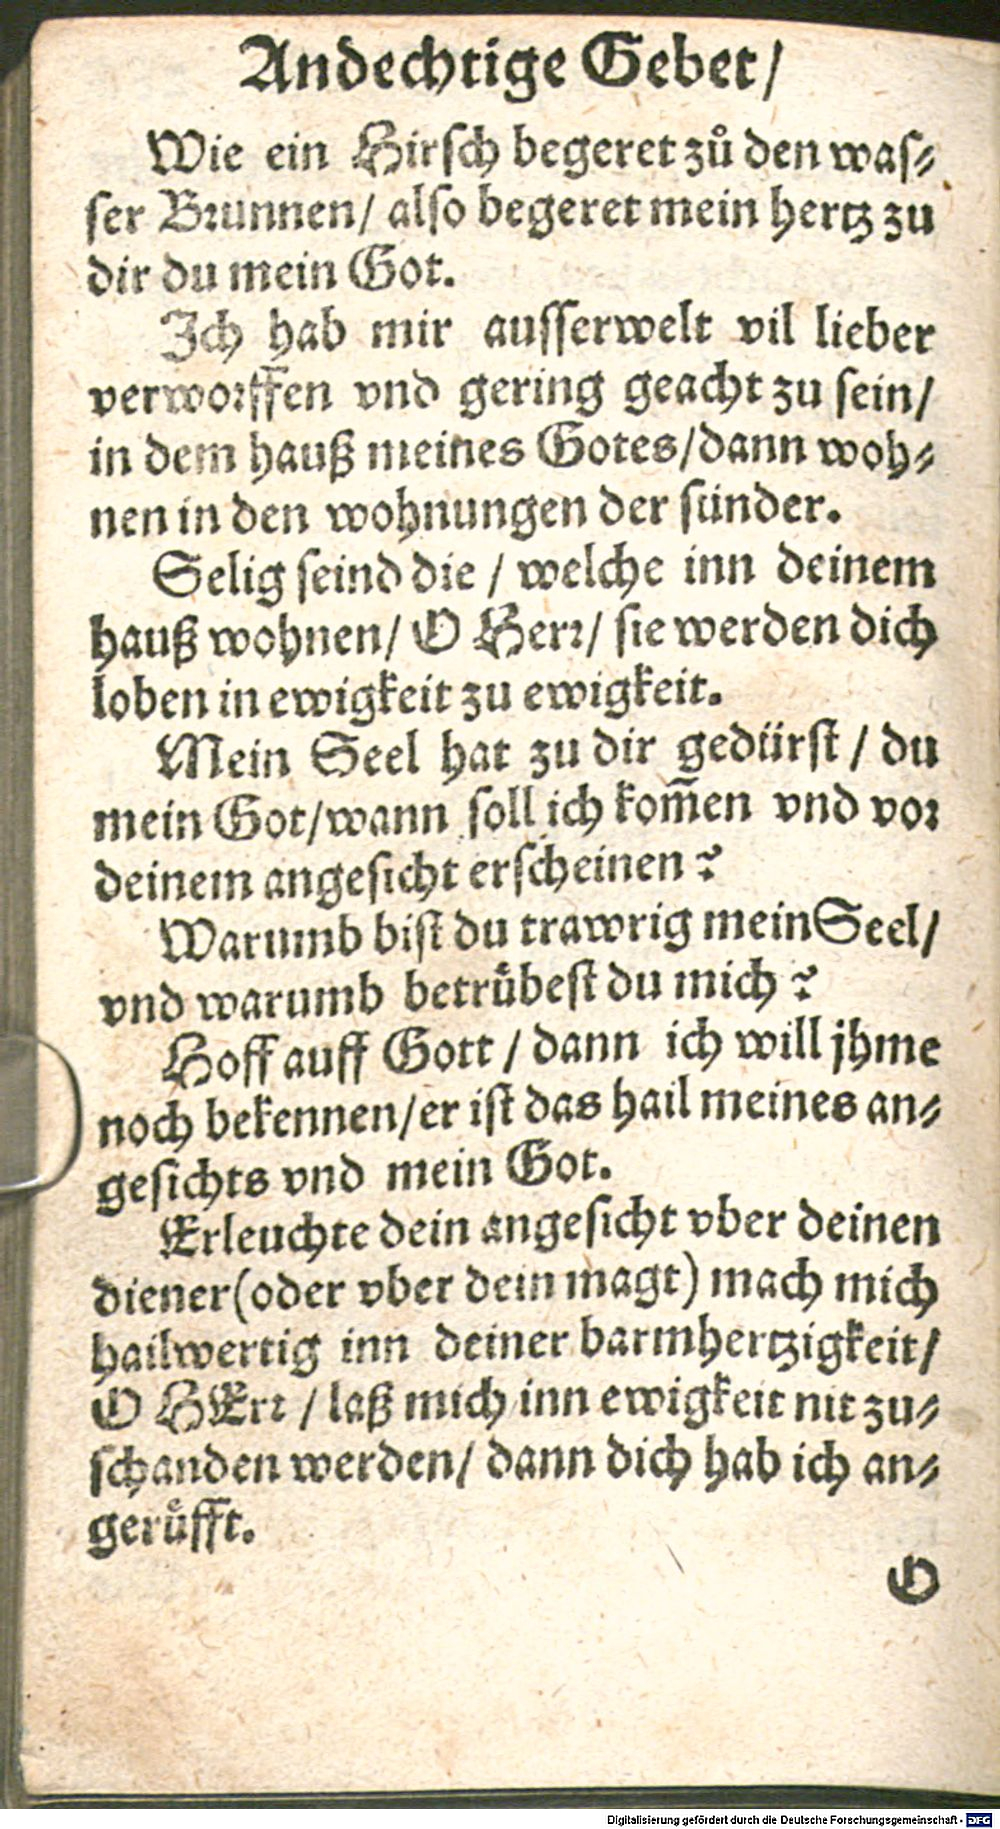 Andechtige Gebet/
Wie ein Hirſch begeret zů den waſ⸗
ſer Brunnen/ alſo begeret mein hertz zu
dir du mein Got.
Ich hab mir auſſerwelt vil lieber
verworffen vnd gering geacht zu ſein/
in dem hauß meines Gotes/dann woh⸗
nen in den wohnungen der ſünder.
Selig ſeind die / welche inn deinem
hauß wohnen/ O Herr/ ſie werden dich
loben in ewigkeit zu ewigkeit.
Mein Seel hat zu dir gedürſt / du
mein Got/wann ſoll ich kom̃en vnd vor
deinem angeſicht erſcheinen?
Warumb biſt du trawrig mein Seel/
vnd warumb betruͤbeſt du mich?
Hoff auff Gott / dann ich will jhme
noch bekennen/er iſt das hail meines an⸗
geſichts vnd mein Got.
Erleuchte dein angeſicht vber deinen
diener(oder vber dein magt) mach mich
hailwertig inn deiner barmhertzigkeit/
O HErr / laß mich inn ewigkeit nit zu⸗
ſchanden werden/ dann dich hab ich an⸗
geruͤfft.
O
Digitalisierung gefördert durch die Deutsche Forschungsgemeinschaft - DFG